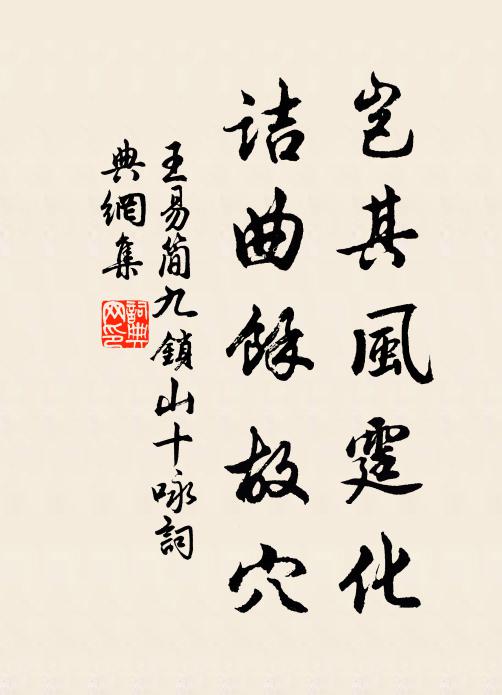 岂其風霆化
詰曲餘故穴
王易简九鎖山十咏詞
典網集
詞典網印